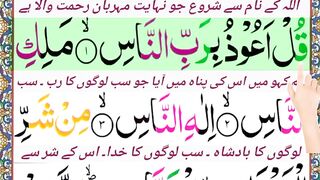 اللہ کے نام سے شروع جو نہایت مہربان رحمت والا ہے
قُلْ اَعُوْذُ بِرَبِّ النَّاسِ ۙ﴿۱﴾ مَلِكِ
کہو میں اس کی پناہ میں آیا جو سب لوگوں کا رب ۔ سب
النَّاسِ ۙ﴿۲﴾ اِلٰهِ النَّاسِ ۙ﴿۳﴾ مِنْ شَرِّ
لوگوں کا بادشاہ ۔ سب لوگوں کا خدا۔ اس کے شر سے